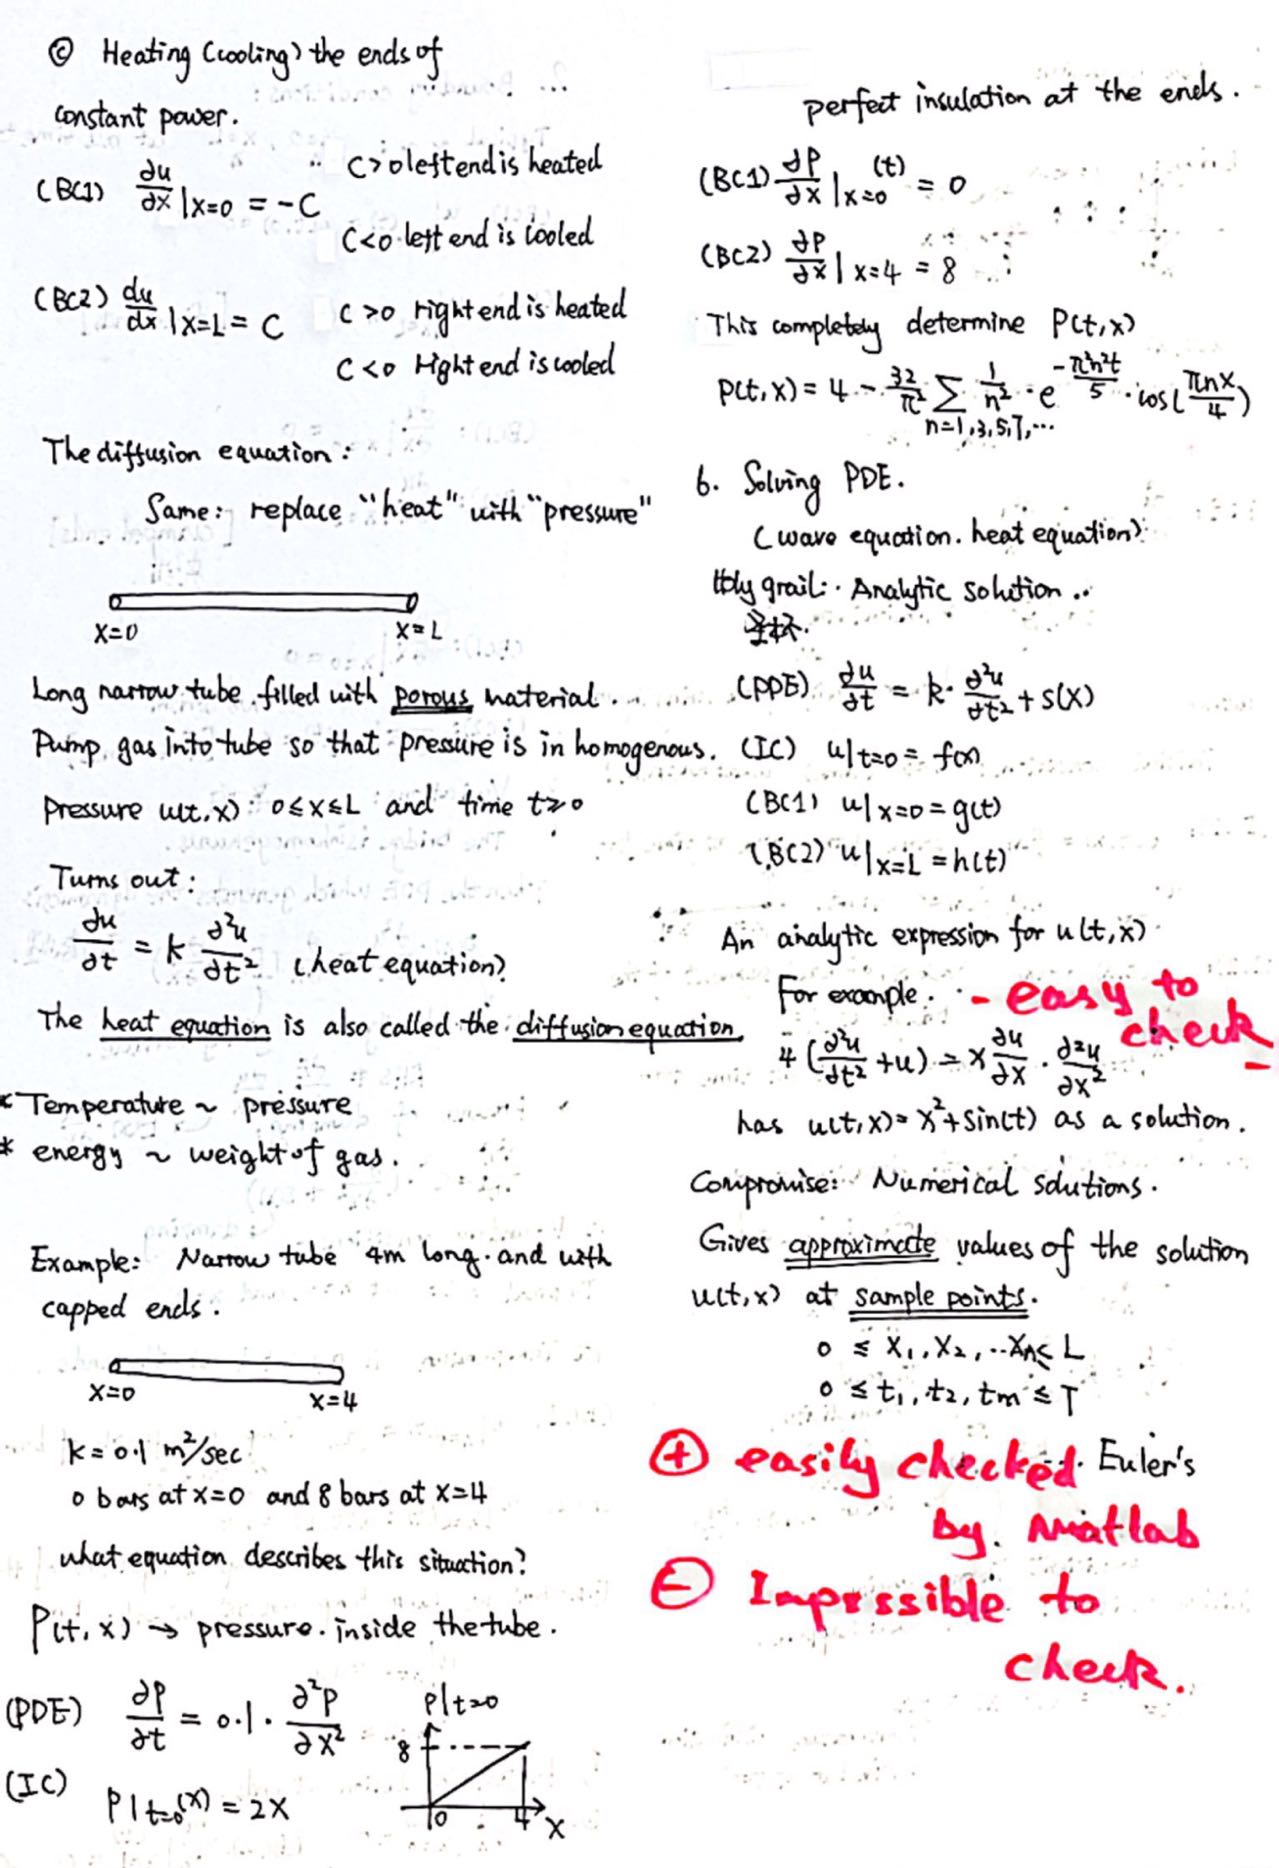 © Heating (cooling) the ends of
constant power.
(BC1) ∂u/∂x |x=0 = -C
C>0 left end is heated
C<0 left end is cooled
(BC2) du/dx |x=L = C
C>0 right end is heated
C<0 right end is cooled
The diffusion equation:
Same: replace "heat" with "pressure"
x=0 x=L
Long narrow tube filled with porous material.
Pump gas into tube so that pressure is in homogenous.
Pressure u(t,x) 0≤x≤L and time t≥0
Turns out:
∂u/∂t = k ∂²u/∂t² (heat equation)
The heat equation is also called the diffusion equation
* Temperature ~ pressure
* energy ~ weight of gas.
Example: Narrow tube 4m long. and with
capped ends.
x=0 x=4
k=0.1 m²/sec
0 bars at x=0 and 8 bars at x=4
what equation describes this situation?
P(t,x) → pressure. inside the tube.
(PDE) ∂P/∂t = 0.1 · ∂²P/∂x²
(IC) P|t=0(x) = 2x
P|t=0
8
0 4 x
perfect insulation at the ends.
(BC1) ∂P/∂x |x=0 (t) = 0
(BC2) ∂P/∂x | x=4 = 8
This completely determine P(t,x)
P(t,x) = 4 - 32/π² Σ n=1,3,5,7,... 1/n² · e^(-π²n²t/5) · cos(πnx/4)
6. Solving PDE.
(wave equation. heat equation)
Holy grail: Analytic solution..
圣杯.
(PDE) ∂u/∂t = k · ∂²u/∂t² + s(x)
(IC) u|t=0 = f(x)
(BC1) u|x=0 = g(t)
(BC2) u|x=L = h(t)
An analytic expression for u(t,x)
For example. - easy to
check -
4(∂²u/∂t² + u) = x ∂u/∂x · ∂²u/∂x²
has u(t,x) = x² + sin(t) as a solution.
Compromise: Numerical solutions.
Gives approximate values of the solution
u(t,x) at sample points.
0 ≤ x₁, x₂, ..xn ≤ L
0 ≤ t₁, t₂, tm ≤ T
⊕ easily checked Euler's
by. Matlab
⊖ Impossible to
check.